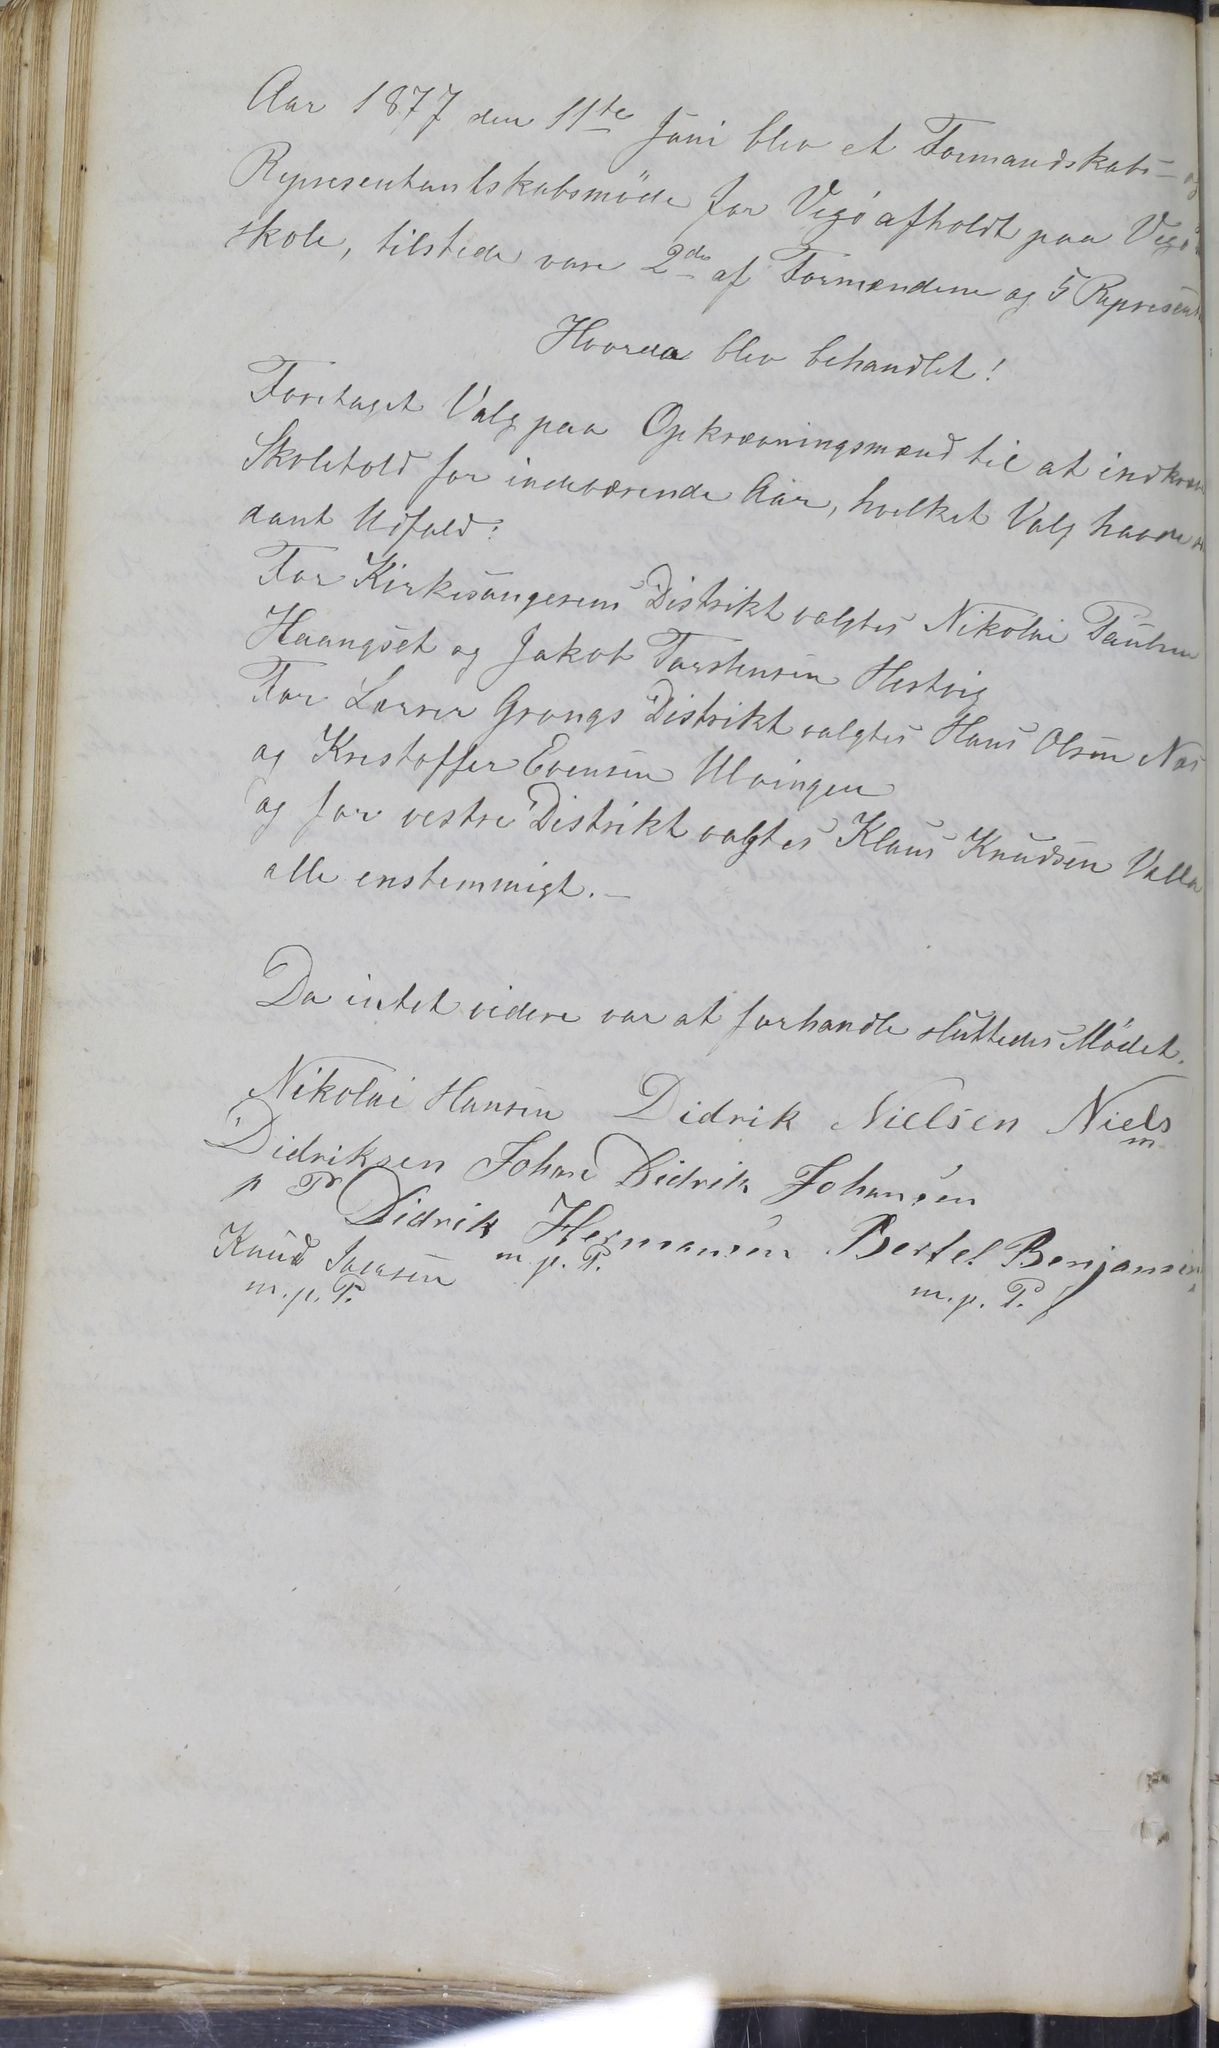 Aar 1877 den 11te Juni blev et Formandskabs- og
Representantskabsmöde for Vegö afholdt paa Vegö
skole, tilstede vare 2de af Formændene og 5 Represent
Hvorda blev behandlet!
Foretaget Valg paa Opkrævningsmænd til at indkræv
Skoletold for indeværende Aar, hvilket Valg havde
dant Udfald:
For Kirkesangerens Distrikt valgtes Nikolai Paulsen
Haangset og Jakob Torstensen Hestvig
For Lærer Grongs Distrikt valgtes Hans Olsen Næs
og Kristoffer Evensen Ulvingen
og for vestre Distrikt valgtes Klaus Knudsen Valla
alle enstemmigt.-
Da intet videre var at forhandle sluttedes Mødet.
Nikolai Hansen Didrik Nielsen Niels
m
Didriksen Johan Didrik Johansen
p P Didrik Hermansen Bertel Benjamins
Knud Isaksen m p. P.
m. p. P. m. p. P.